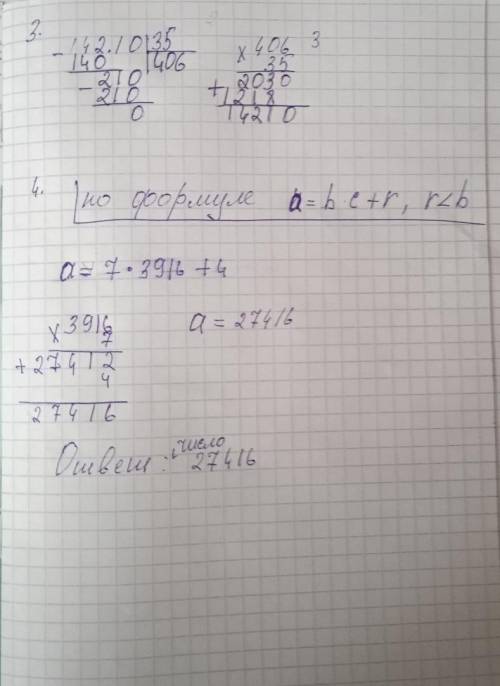 3.
- 142.10 | 35
140 | 406
- 210
210
0
3
× 406
35
2030
+ 1218
14210
4. по формуле a = b·c+r, r<b
a = 7·3916+4
× 3916
7
+ 27412
4
27416
a = 27416
Ответ: число 27416